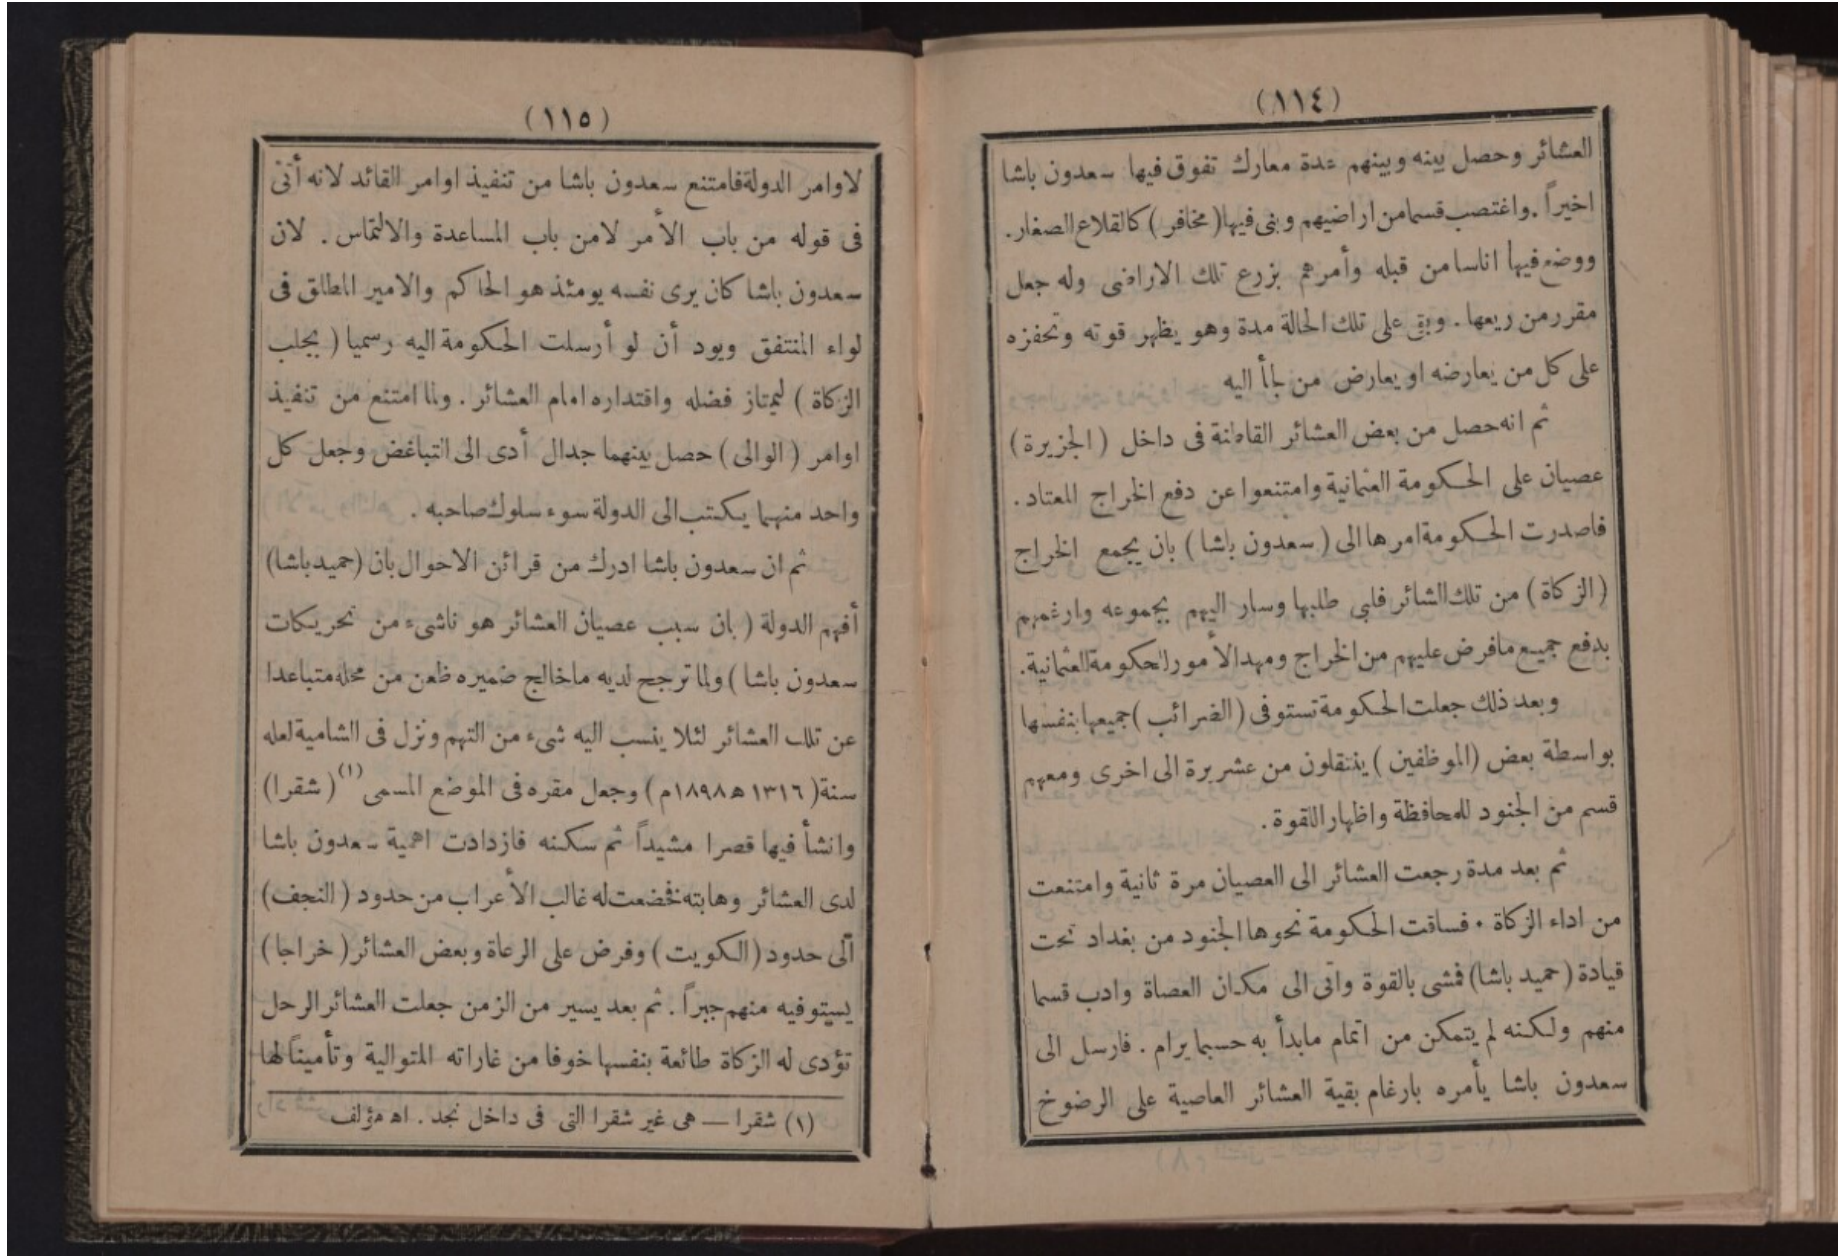 (١١٤)
العشائر وحصل بينه وبينهم عدة معارك تفوق فيها سعدون باشا
اخيراً . واغتصب قسما من اراضيهم وبنى فيها (مخافر) كالقلاع الصغار .
ووضع فيها اناسا من قبله وأمرهم بزرع تلك الاراضى وله جعل
مقرر من ريعها . وبقى على تلك الحالة مدة وهو يظهر قوته وتحفزه
على كل من يعارضه او يعارض من لجأ اليه
ثم انه حصل من بعض العشائر القاطنة فى داخل (الجزيرة)
عصيان على الحكومة العثمانية وامتنعوا عن دفع الخراج المعتاد .
فاصدرت الحكومة امرها الى (سعدون باشا) بان يجمع الخراج
(الزكاة) من تلك الشائر فلبى طلبها وسار اليهم بجموعه وارغمهم
بدفع جميع مافرض عليهم من الخراج ومهد الأمور للحكومة العثمانية .
وبعد ذلك جعلت الحكومة تستوفى (الضرائب) جميعها بنفسها
بواسطة بعض (الموظفين) ينتقلون من عشريرة الى اخرى ومعهم
قسم من الجنود للمحافظة واظهار اللقوة .
ثم بعد مدة رجعت العشائر الى العصيان مرة ثانية وامتنعت
من اداء الزكاة . فساقت الحكومة نحوها الجنود من بغداد تحت
قيادة (حميد باشا) فمشى بالقوة واتى الى مكان العصاة وادب قسما
منهم ولكنه لم يتمكن من اتمام مابدأ به حسبما يرام . فارسل الى
سعدون باشا يأمره بارغام بقية العشائر العاصية على الرضوخ
(١١٥)
لاوامر الدولة فامتنع سعدون باشا من تنفيذ اوامر القائد لانه أتى
فى قوله من باب الأمر لامن باب المساعدة والالتماس . لان
سعدون باشا كان يرى نفسه يومئذ هو الحاكم والامير المطلق فى
لواء المنتفق ويود أن لو أرسلت الحكومة اليه رسميا (بجلب
الزكاة) ليمتاز فضله واقتداره امام العشائر . ولما امتنع من تنفيذ
اوامر (الوالى) حصل بينهما جدال أدى الى التباغض وجعل كل
واحد منهما يكتب الى الدولة سوء سلوك صاحبه .
ثم ان سعدون باشا ادرك من قرائن الاحوال بان (حميد باشا)
أفهم الدولة (بان سبب عصيان العشائر هو ناشىء من تحريكات
سعدون باشا) ولما ترجح لديه ماخالج ضميره ظعن من محله متباعدا
عن تلك العشائر لئلا ينسب اليه شىء من التهم ونزل فى الشامية لعله
سنة (١٣١٦ ه ١٨٩٨ م) وجعل مقره فى الموضع المسمى (١) (شقرا)
وانشأ فيها قصرا مشيداً ثم سكنه فازدادت اهمية سعدون باشا
لدى العشائر وهابته فخضعت له غالب الأعراب من حدود (النجف)
الى حدود (الكويت) وفرض على الرعاة وبعض العشائر (خراجا)
يستوفيه منهم جبراً . ثم بعد يسير من الزمن جعلت العشائر الرحل
تؤدى له الزكاة طائعة بنفسها خوفا من غاراته المتوالية وتأميناً لها
(١) شقرا — هى غير شقرا التى فى داخل نجد . اه مؤلف